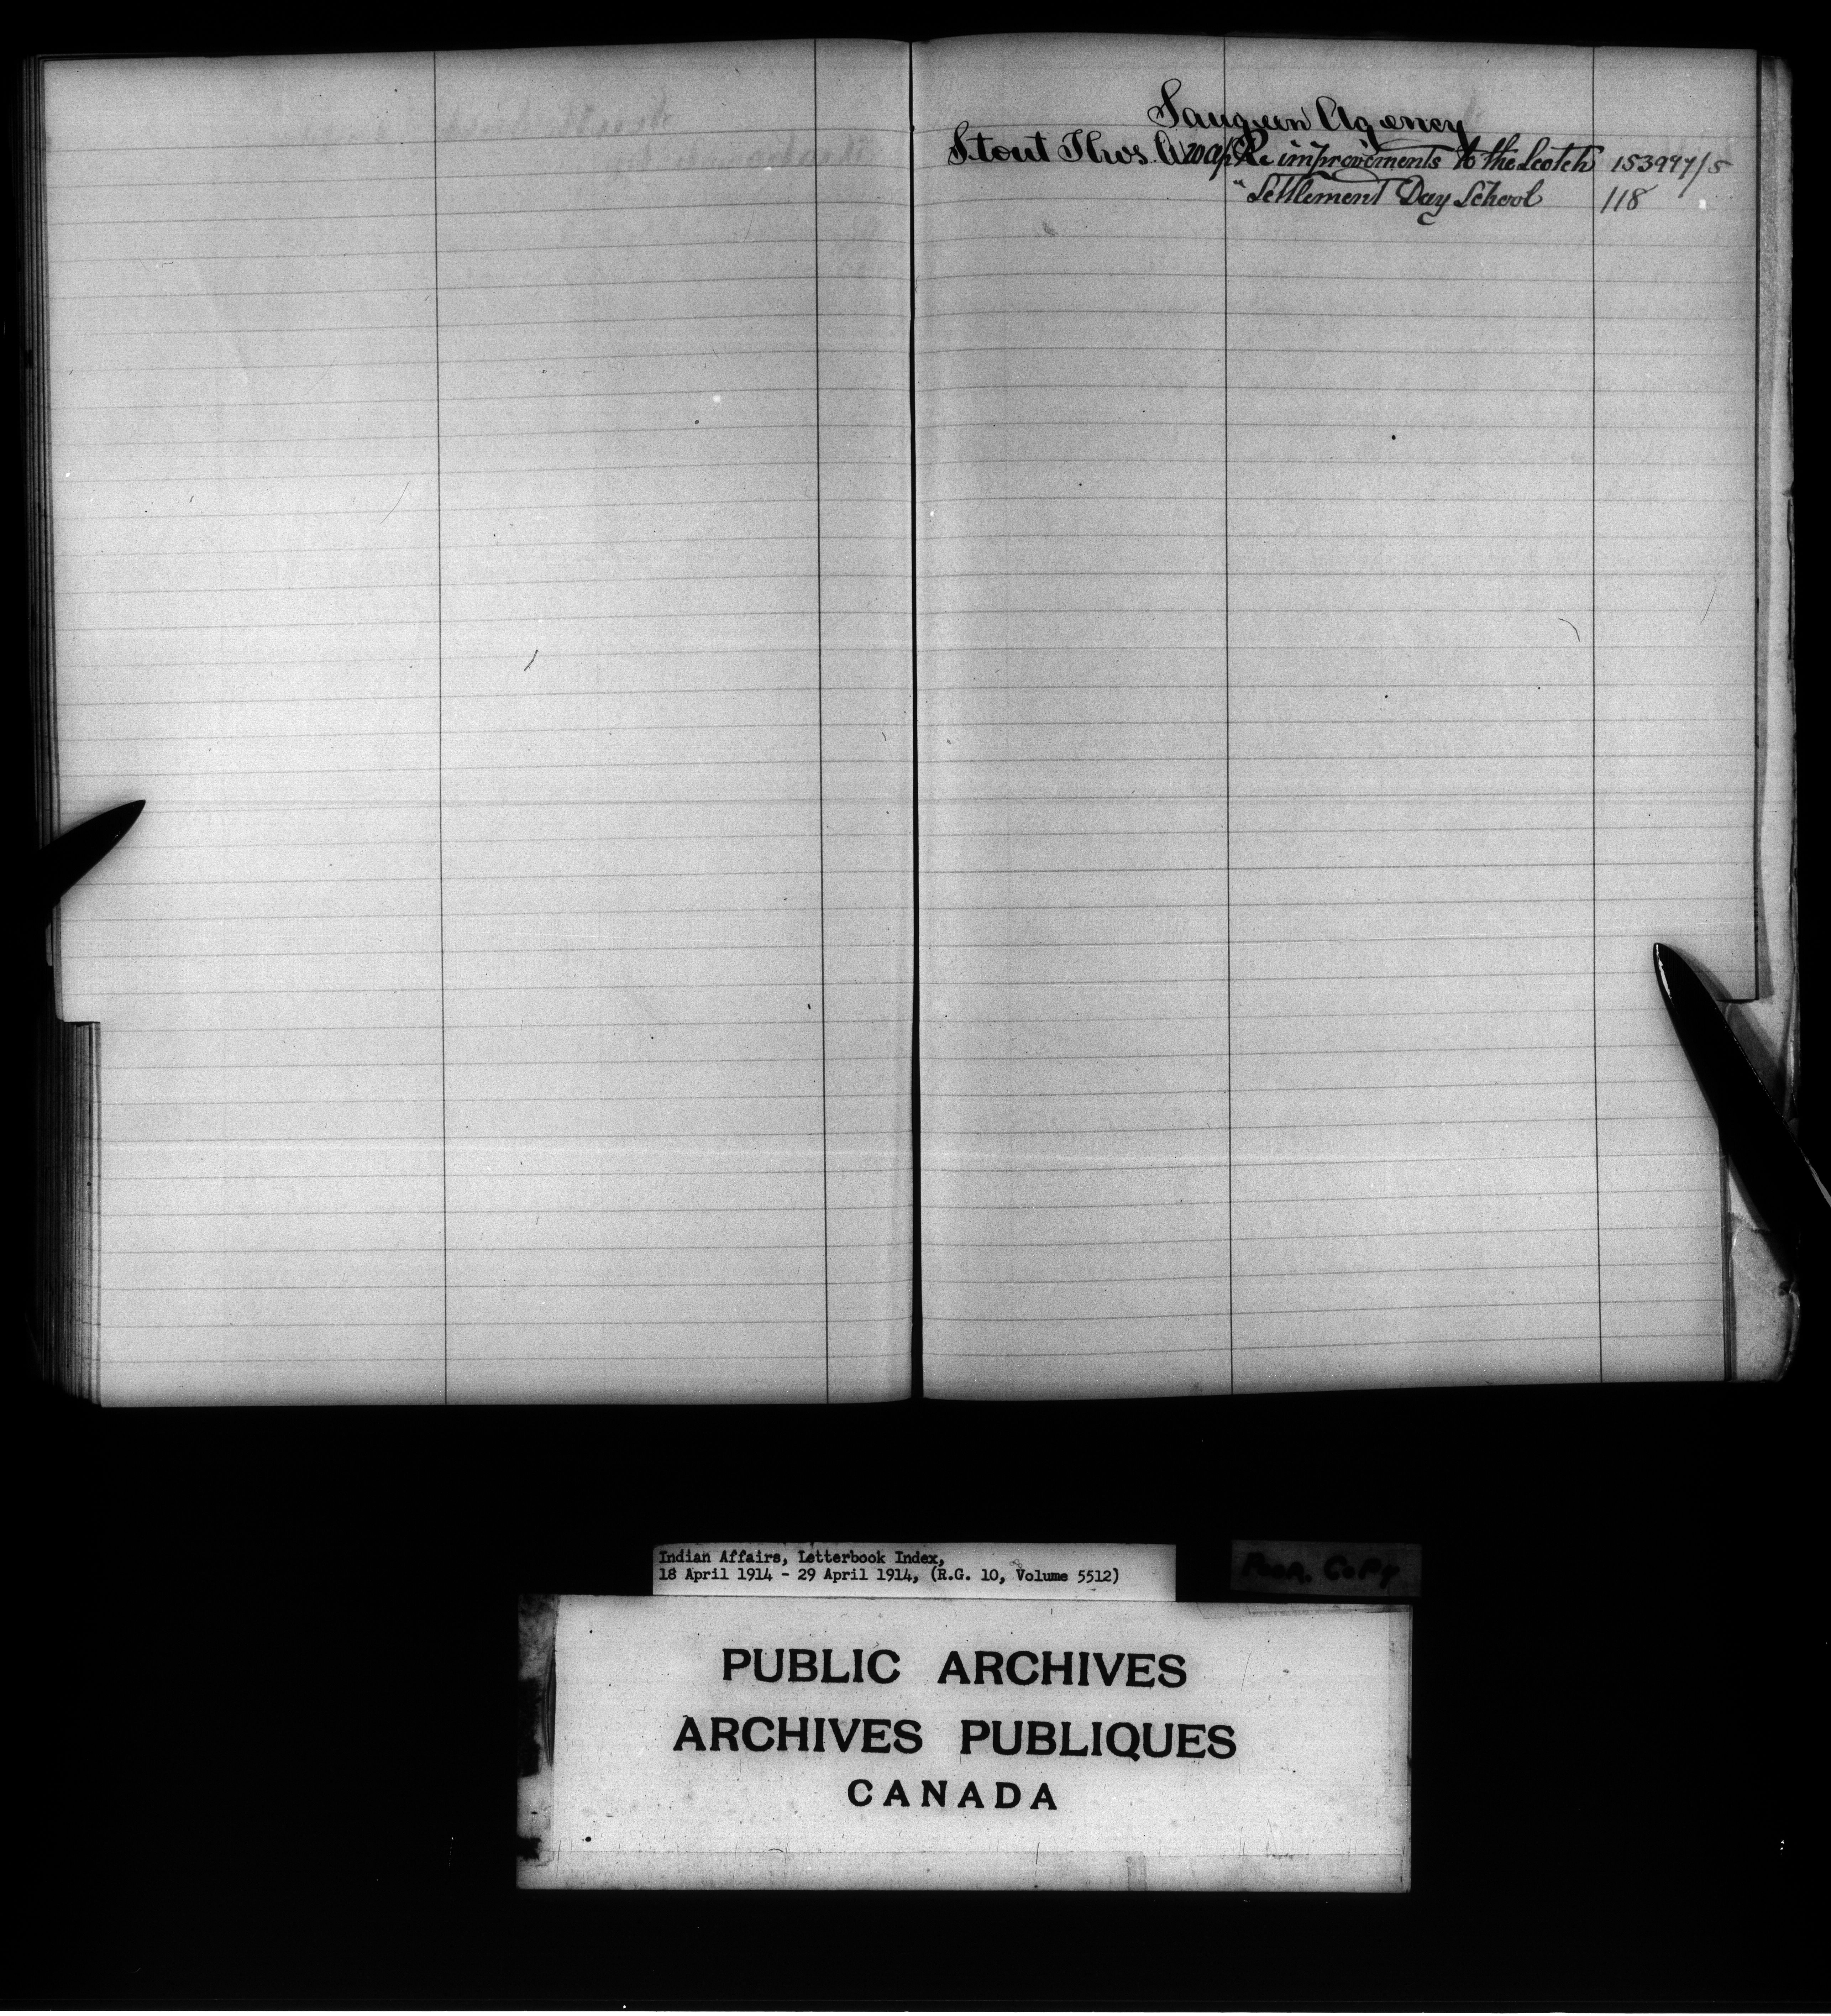 Saugeen Agency
Stout Thos. A. 20 Ap Re improvements to the Scotch 153997/5
" Settlement Day School 118
Indian Affairs, Letterbook Index,
18 April 1914 - 29 April 1914, (R.G. 10, Volume 5512)
Poor Copy
PUBLIC ARCHIVES
ARCHIVES PUBLIQUES
CANADA